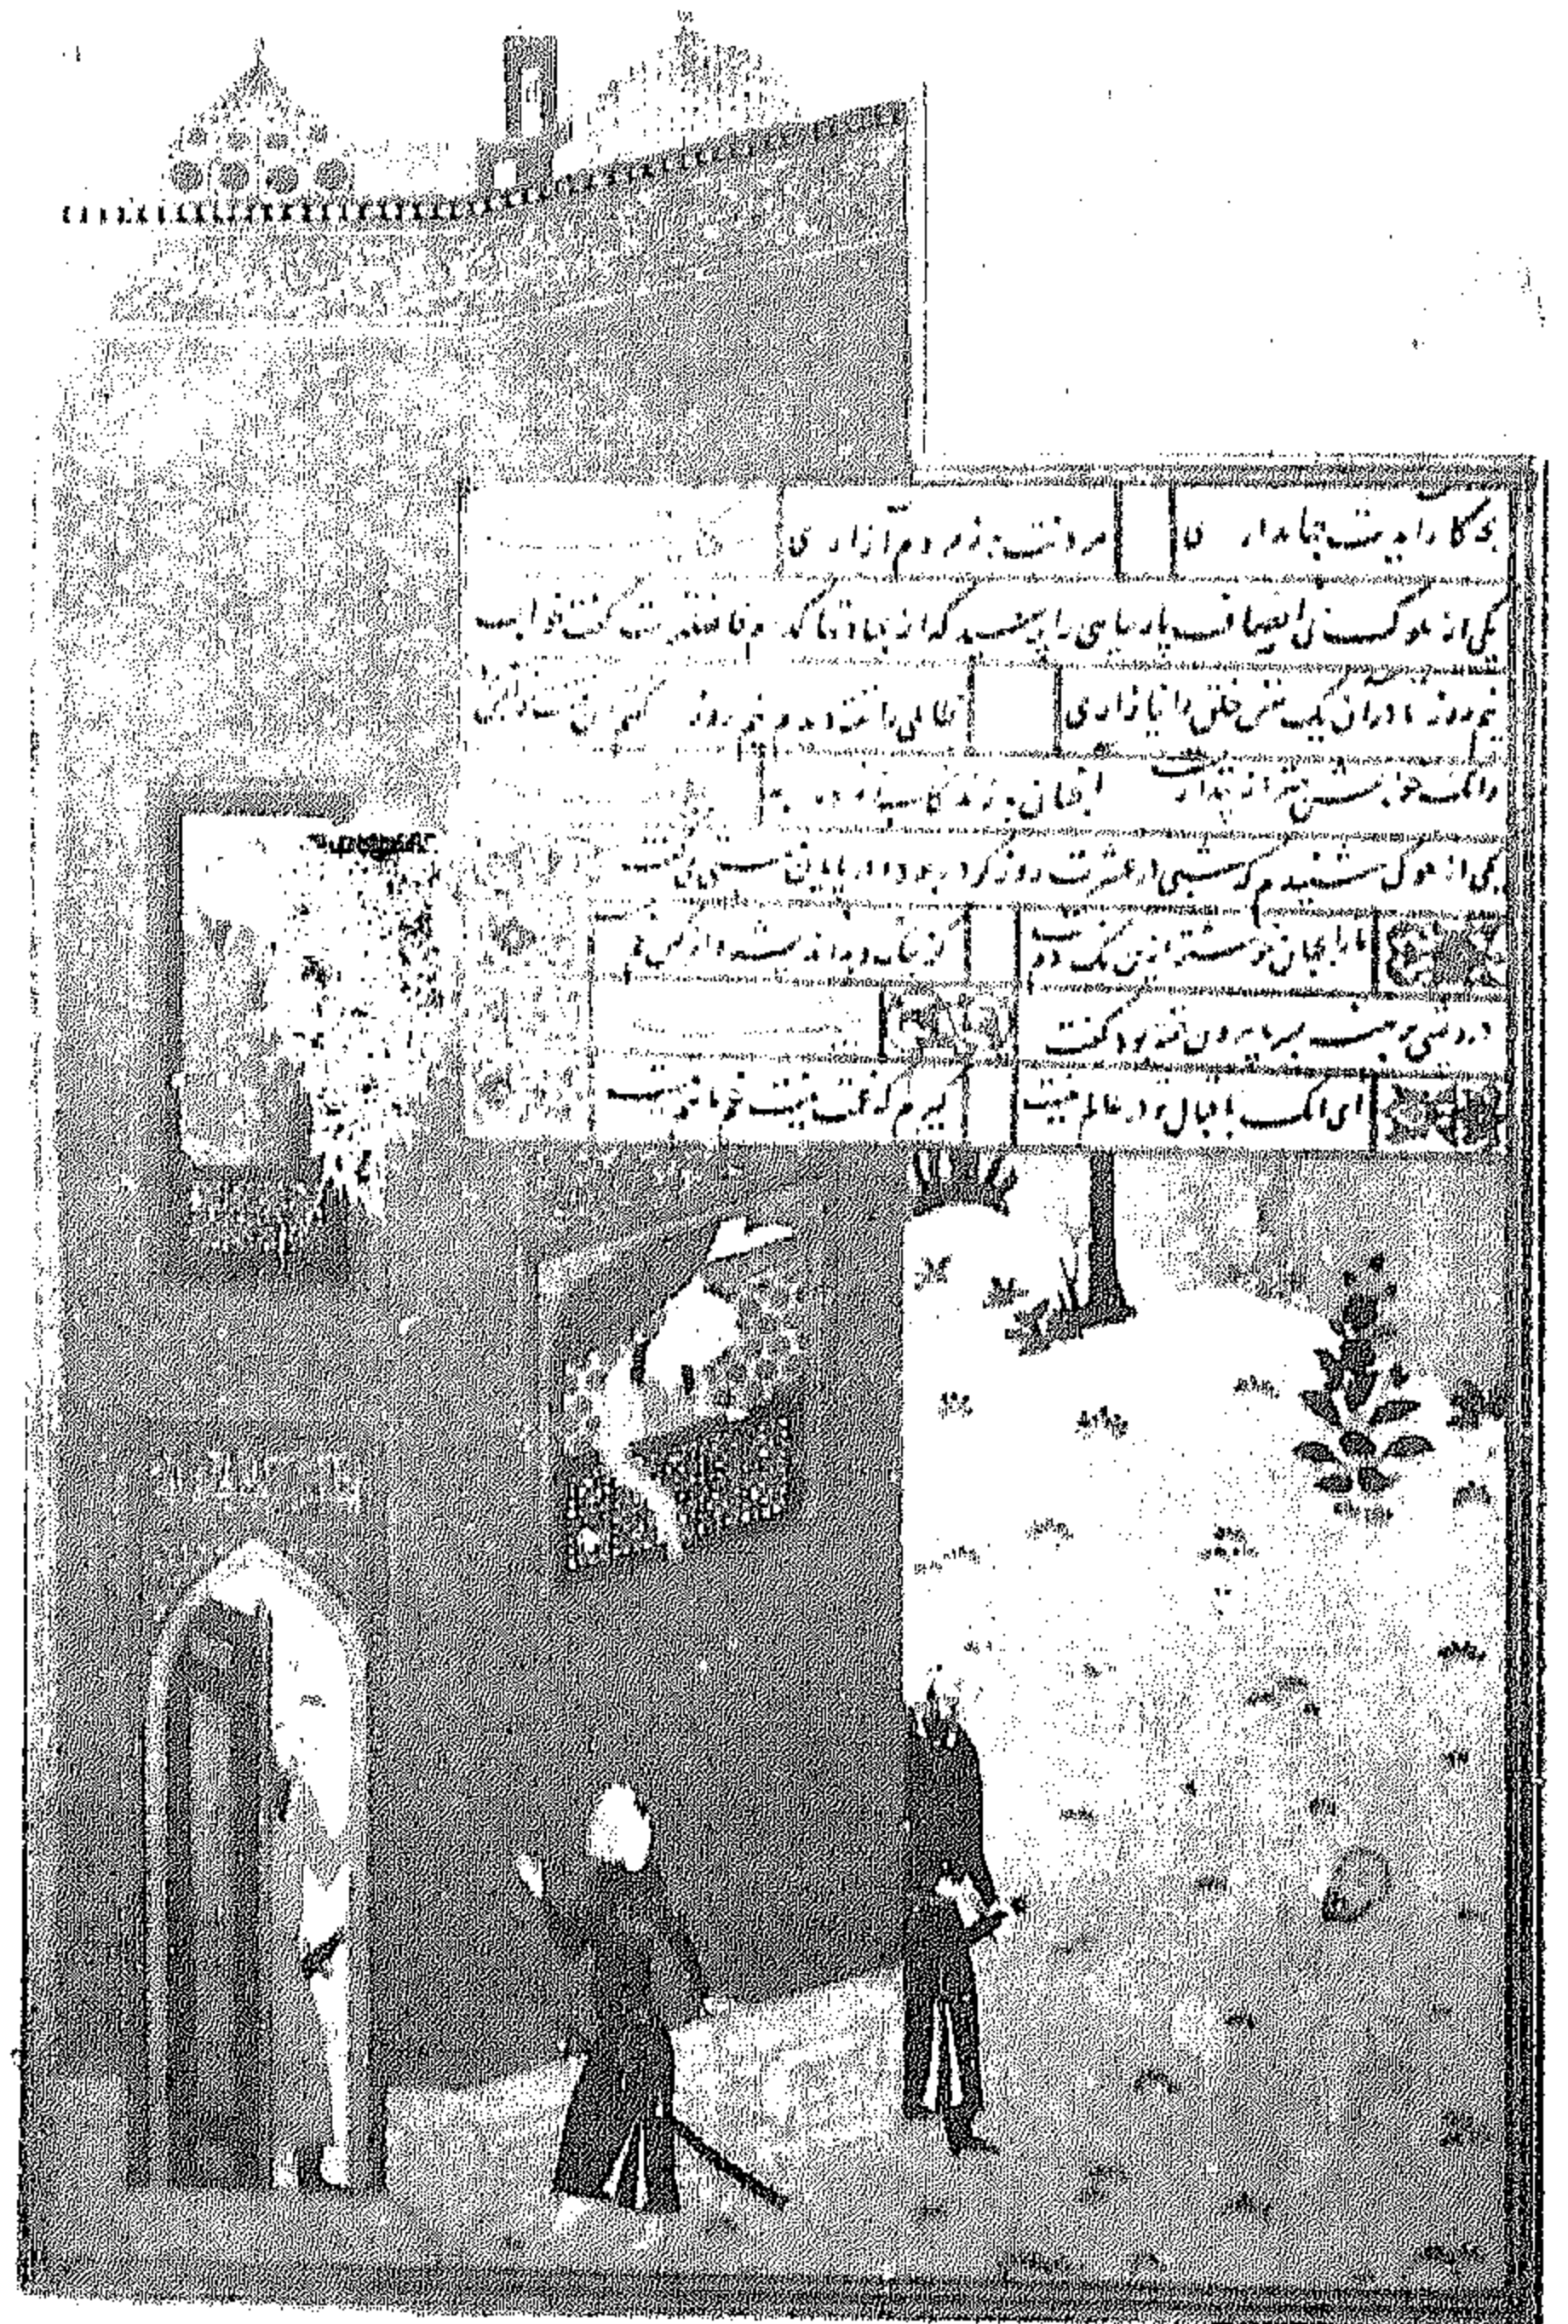 بچه کار آیدت جهانداری مردنت به که مردم آزاری
یکی از ملوک بی انصاف پارسایی را پرسید که از عبادتها کدام فاضلترست گفت ترا خواب
نیم روز تا در آن یک نفس خلق را نیازاری ظالمی را خفته دیدم نیم روز گفتم این فتنه است
وانکه خوابش بهتر از بیداریست آنچنان بد زندگانی مرده به
یکی از ملوک شنیدم که شبی در عشرت روز کرده بود و در پایان مستی میگفت
ما را بجهان خوشتر ازین یکدم نیست کز نیک و بد اندیشه و از کس غم نیست
درویشی برهنه بسرما برون خفته بود گفت
ای آنکه باقبال تو در عالم نیست گیرم که غمت نیست غم ما هم نیست